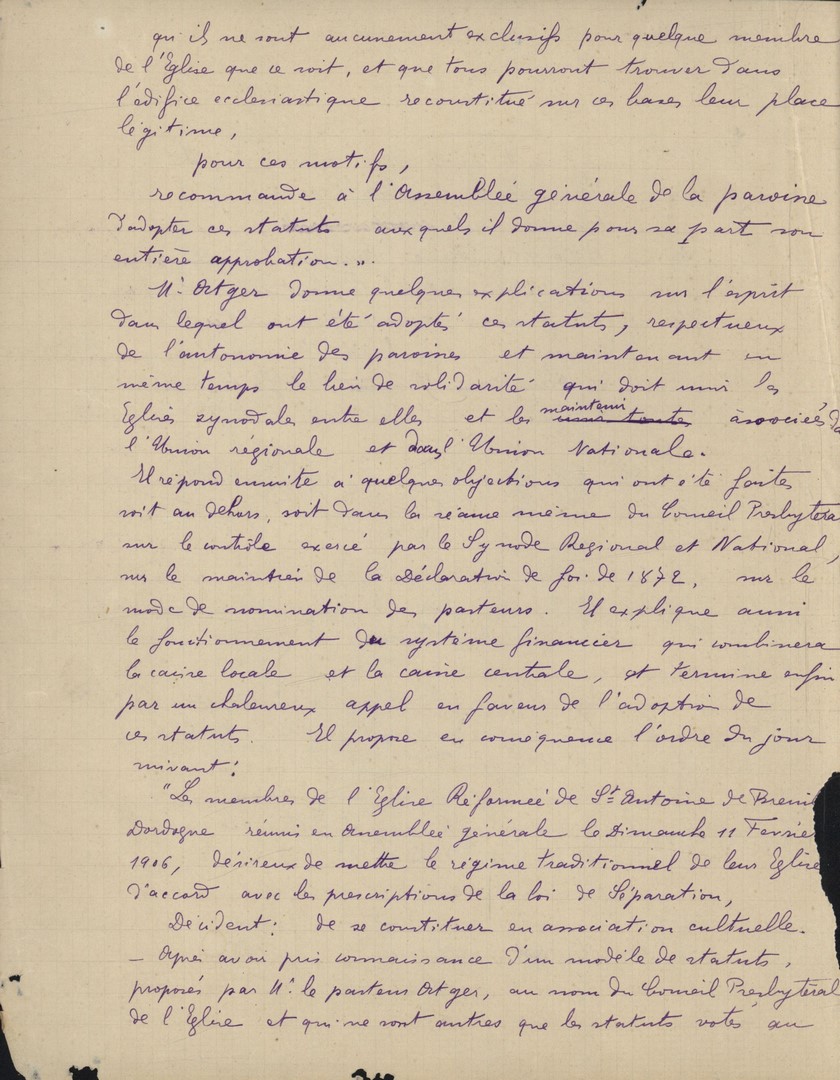 qu'ils ne sont aucunement exclusifs pour quelque membre
de l'Eglise que ce soit, et que tous pourront trouver dans
l'édifice ecclésiastique reconstitué sur ces bases leur place
légitime,
pour ces motifs,
recommande à l'Assemblée générale de la paroisse
d'adopter ces statuts auxquels il donne pour sa part son
entière approbation.".
Mr Atger donne quelques explications sur l'esprit
dans lequel ont été adoptés ces statuts, respectueux
de l'autonomie des paroisses et maintenant en
même temps le lien de solidarité qui doit unir les
Eglises synodales entre elles et les maintenir associées
l'Union régionale et dans l'Union Nationale.
Il répond ensuite à quelques objections qui ont été faites
soit au dehors, soit dans la séance même du Conseil Presbytéra
sur le contrôle exercé par le Synode Regional et National,
sur le maintien de la Déclaration de foi de 1872, sur le
mode de nomination des pasteurs. Il explique aussi
le fonctionnement du système financier qui combinera
la caisse locale et la caisse centrale, et termine enfin
par un chaleureux appel en faveur de l'adoption de
ces statuts. Il propose en conséquence l'ordre du jour
suivant:
"Les membres de l'Eglise Réformée de St Antoine de Breuil
Dordogne réunis en Assemblée générale le Dimanche 11 Fevrier
1906, désireux de mettre le régime traditionnel de leur Eglise
d'accord avec les prescriptions de la loi de Séparation,
Décident: de se constituer en association cultuelle.
- Après avoir pris connaissance d'un modèle de statuts,
proposés par Mr le pasteur Atger, au nom du Conseil Presbytéral
de l'Eglise et qui ne sont autres que les statuts votés au